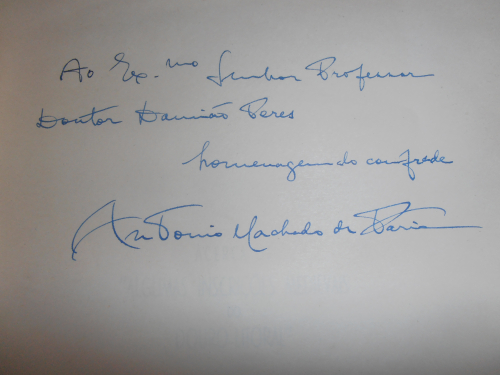 Ao Ex.mo Senhor Professor
Doutor Damião Peres
homenagem do confrade
Antonio Machado de Faria